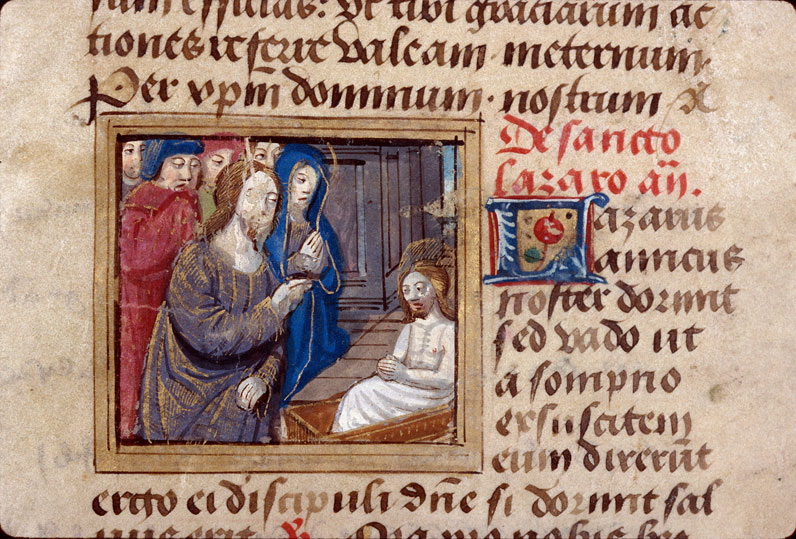 num efficias: Ut tibi gratiarum ac
tiones referre valeam · in eternum.
Per xpm dominum · nostrum
De sancto
lazaro an̄.
Lazarus
amicus
noster dormit
sed vado ut
a sompno
exsuscitem
eum dixerūt
ergo ei discipuli dn̄e si dormit sal
vus erit Ora pro nobis be